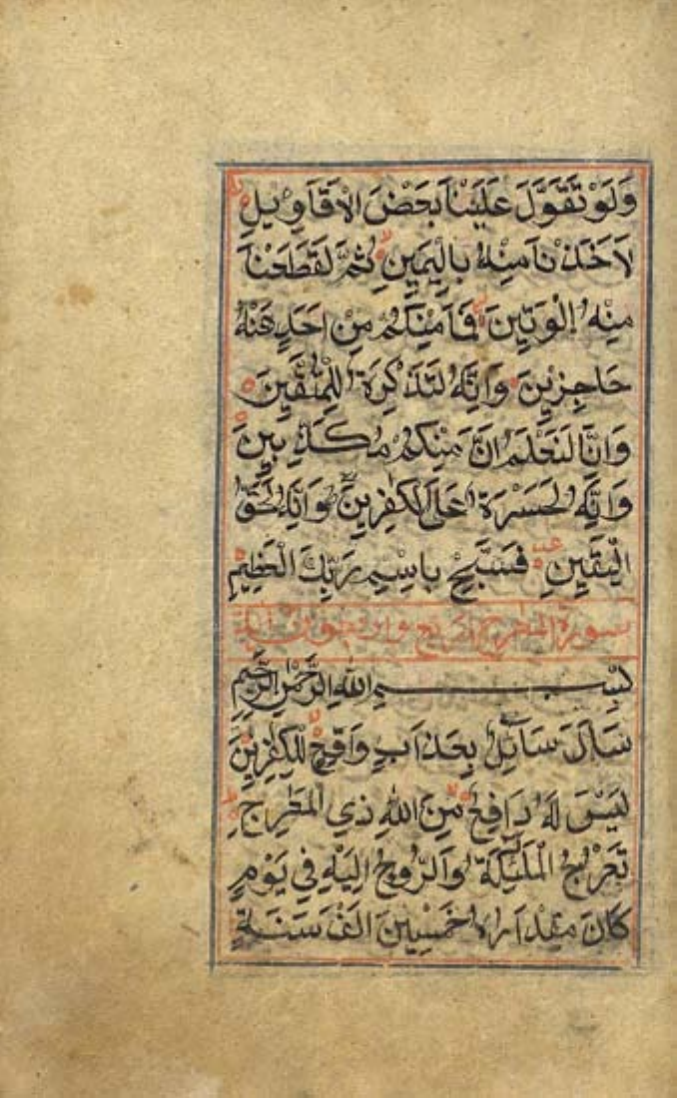 وَلَوْ تَقَوَّلَ عَلَيْنَا بَعْضَ الْاَقَاوِيْلِ
لَاَخَذْنَا مِنْهُ بِالْيَمِيْنِ ثُمَّ لَقَطَعْنَا
مِنْهُ الْوَتِيْنَ فَمَا مِنْكُمْ مِنْ اَحَدٍ عَنْهُ
حَاجِزِيْنَ وَاِنَّهُ لَتَذْكِرَةٌ لِلْمُتَّقِيْنَ
وَاِنَّا لَنَعْلَمُ اَنَّ مِنْكُمْ مُكَذِّبِيْنَ
وَاِنَّهُ لَحَسْرَةٌ عَلَى الْكٰفِرِيْنَ وَاِنَّهُ لَحَقُّ
الْيَقِيْنِ فَسَبِّحْ بِاسْمِ رَبِّكَ الْعَظِيْمِ
سورة المعارج اربع واربعون اية
بِسْمِ اللهِ الرَّحْمٰنِ الرَّحِيْمِ
سَاَلَ سَائِلٌ بِعَذَابٍ وَاقِعٍ لِلْكٰفِرِيْنَ
لَيْسَ لَهُ دَافِعٌ مِّنَ اللهِ ذِي الْمَعٰرِجِ
تَعْرُجُ الْمَلٰئِكَةُ وَالرُّوْحُ اِلَيْهِ فِي يَوْمٍ
كَانَ مِقْدَارُهُ خَمْسِيْنَ اَلْفَ سَنَةٍ